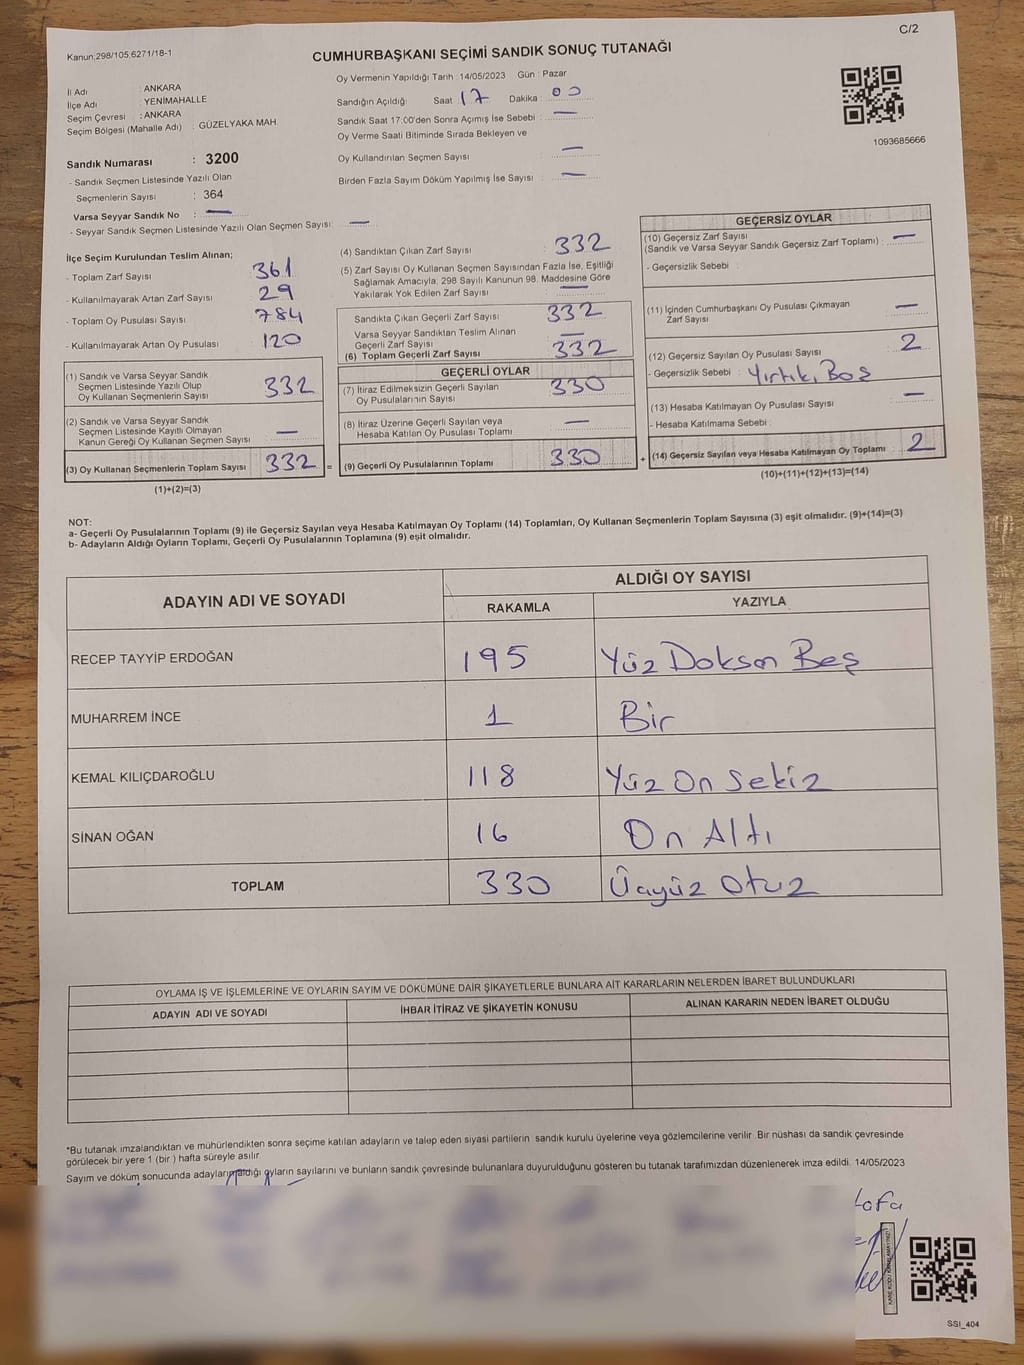 C/2
Kanun:298/105;6271/18-1
CUMHURBAŞKANI SEÇİMİ SANDIK SONUÇ TUTANAĞI
İl Adı : ANKARA
İlçe Adı : YENİMAHALLE
Seçim Çevresi : ANKARA
Seçim Bölgesi (Mahalle Adı) : GÜZELYAKA MAH.
Sandık Numarası : 3200
- Sandık Seçmen Listesinde Yazılı Olan
Seçmenlerin Sayısı : 364
Varsa Seyyar Sandık No : —
- Seyyar Sandık Seçmen Listesinde Yazılı Olan Seçmen Sayısı: —
Oy Vermenin Yapıldığı Tarih : 14/05/2023 Gün : Pazar
Sandığın Açıldığı Saat 17 Dakika : 00
Sandık Saat 17:00'den Sonra Açımış İse Sebebi : —
Oy Verme Saati Bitiminde Sırada Bekleyen ve
Oy Kullandırılan Seçmen Sayısı : —
Birden Fazla Sayım Döküm Yapılmış İse Sayısı : —
1093685666
İlçe Seçim Kurulundan Teslim Alınan;
- Toplam Zarf Sayısı 361
- Kullanılmayarak Artan Zarf Sayısı 29
- Toplam Oy Pusulası Sayısı 784
- Kullanılmayarak Artan Oy Pusulası 120
(1) Sandık ve Varsa Seyyar Sandık
Seçmen Listesinde Yazılı Olup
Oy Kullanan Seçmenlerin Sayısı 332
(2) Sandık ve Varsa Seyyar Sandık
Seçmen Listesinde Kayıtlı Olmayan
Kanun Gereği Oy Kullanan Seçmen Sayısı —
(3) Oy Kullanan Seçmenlerin Toplam Sayısı 332 =
(1)+(2)=(3)
(4) Sandıktan Çıkan Zarf Sayısı : 332
(5) Zarf Sayısı Oy Kullanan Seçmen Sayısından Fazla İse, Eşitliği
Sağlamak Amacıyla; 298 Sayılı Kanunun 98. Maddesine Göre
Yakılarak Yok Edilen Zarf Sayısı : —
Sandıkta Çıkan Geçerli Zarf Sayısı : 332
Varsa Seyyar Sandıktan Teslim Alınan
Geçerli Zarf Sayısı : —
(6) Toplam Geçerli Zarf Sayısı : 332
GEÇERLİ OYLAR
(7) İtiraz Edilmeksizin Geçerli Sayılan
Oy Pusulalarının Sayısı : 330
(8) İtiraz Üzerine Geçerli Sayılan veya
Hesaba Katılan Oy Pusulası Toplamı : —
(9) Geçerli Oy Pusulalarının Toplamı : 330 +
GEÇERSİZ OYLAR
(10) Geçersiz Zarf Sayısı
(Sandık ve Varsa Seyyar Sandık Geçersiz Zarf Toplamı) : —
- Geçersizlik Sebebi :
(11) İçinden Cumhurbaşkanı Oy Pusulası Çıkmayan
Zarf Sayısı : —
(12) Geçersiz Sayılan Oy Pusulası Sayısı : 2
- Geçersizlik Sebebi : Yırtık, Boş
(13) Hesaba Katılmayan Oy Pusulası Sayısı : —
- Hesaba Katılmama Sebebi :
(14) Geçersiz Sayılan veya Hesaba Katılmayan Oy Toplamı : 2
(10)+(11)+(12)+(13)=(14)
NOT:
a- Geçerli Oy Pusulalarının Toplamı (9) ile Geçersiz Sayılan veya Hesaba Katılmayan Oy Toplamı (14) Toplamları, Oy Kullanan Seçmenlerin Toplam Sayısına (3) eşit olmalıdır. (9)+(14)=(3)
b- Adayların Aldığı Oyların Toplamı, Geçerli Oy Pusulalarının Toplamına (9) eşit olmalıdır.
ADAYIN ADI VE SOYADI ALDIĞI OY SAYISI
RAKAMLA YAZIYLA
RECEP TAYYİP ERDOĞAN 195 Yüz Doksan Beş
MUHARREM İNCE 1 Bir
KEMAL KILIÇDAROĞLU 118 Yüz On Sekiz
SİNAN OĞAN 16 On Altı
TOPLAM 330 Üçyüz Otuz
OYLAMA İŞ VE İŞLEMLERİNE VE OYLARIN SAYIM VE DÖKÜMÜNE DAİR ŞİKAYETLERLE BUNLARA AİT KARARLARIN NELERDEN İBARET BULUNDUKLARI
ADAYIN ADI VE SOYADI İHBAR İTİRAZ VE ŞİKAYETİN KONUSU ALINAN KARARIN NEDEN İBARET OLDUĞU
*Bu tutanak imzalandıktan ve mühürlendikten sonra seçime katılan adayların ve talep eden siyasi partilerin sandık kurulu üyelerine veya gözlemcilerine verilir. Bir nüshası da sandık çevresinde
görülecek bir yere 1 (bir ) hafta süreyle asılır.
Sayım ve döküm sonucunda adayların aldığı oyların sayılarını ve bunların sandık çevresinde bulunanlara duyurulduğunu gösteren bu tutanak tarafımızdan düzenlenerek imza edildi. 14/05/2023
KARE KODU KARALAMAYINIZ!
SSI_404